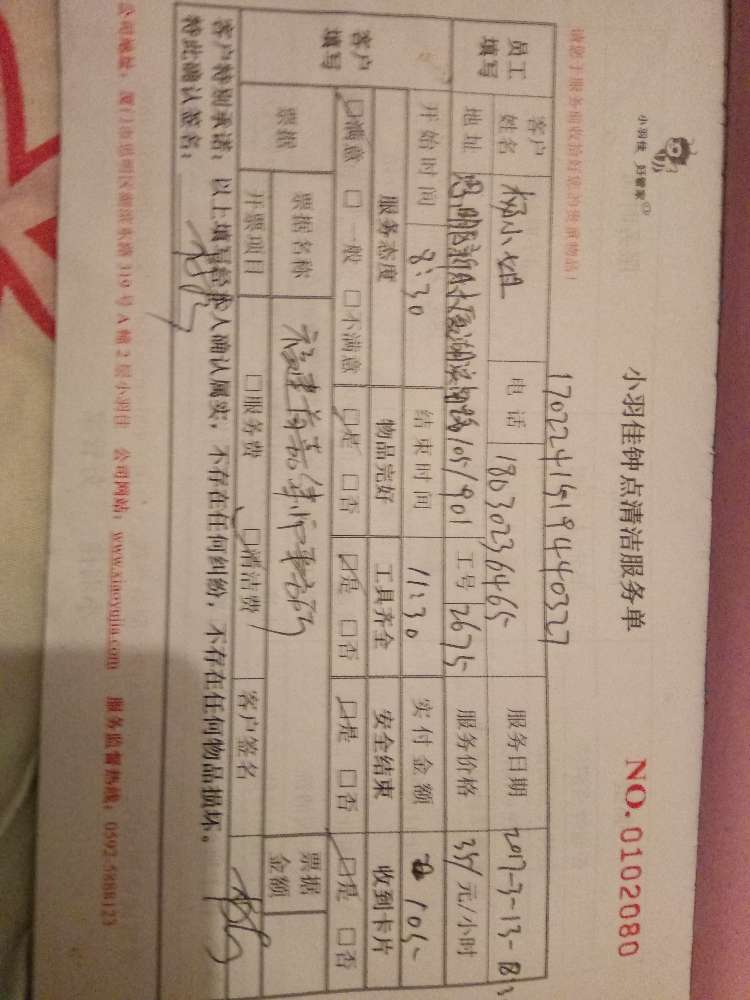 小羽佳 好管家
小羽佳钟点清洁服务单
NO.0102080
请您于服务前收拾好您的贵重物品!
1702241519440327
员工填写
客户姓名 杨小姐 电话 18030236465 服务日期 2017-3-13-
地址 思明区 1051901 工号 2675 服务价格 35/元/小时
开始时间 8:30 结束时间 11:30 实付金额 105-
客户填写
服务态度 物品完好 工具齐全 安全结束 收到卡片
☑满意 □一般 □不满意 ☑是 □否 ☑是 □否 ☑是 □否 ☑是 □否
票据 票据名称 福建 律师事务所 票据金额
开票项目 □服务费 ☑清洁费 客户签名
客户特别承诺:以上填写经本人确认属实,不存在任何纠纷,不存在任何物品损坏。
特此确认签名:
公司地址:厦门市思明区湖滨东路319号A幢2层小羽佳 公司网站:www.xiaoyujia.com 服务监督热线:0592-5888123